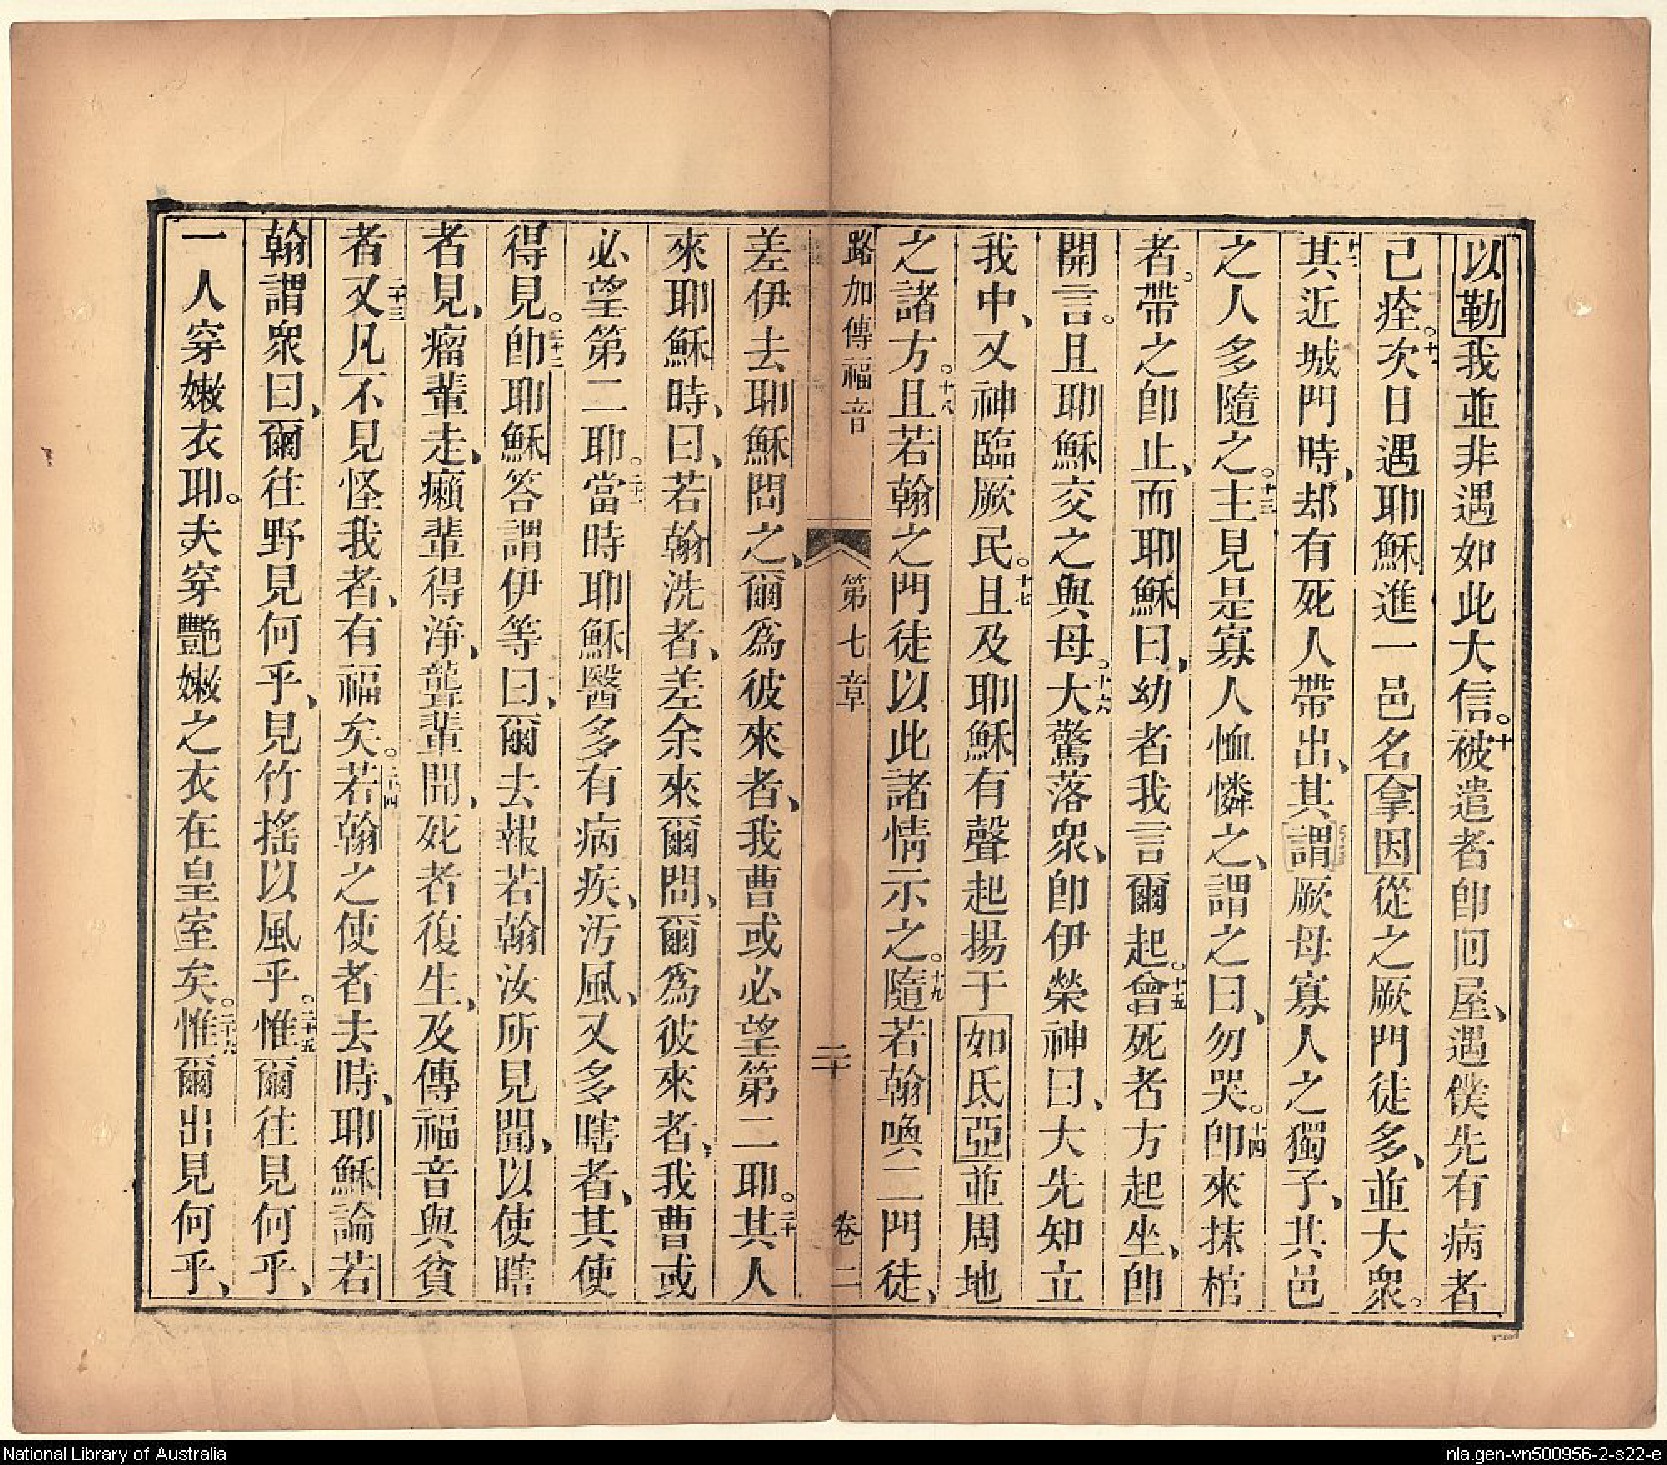 以勒我並非遇如此大信。十被遣者卽回屋、遇僕先有病者
已痊。十一次日遇耶穌進一邑名拿因從之厥門徒多、並大衆。
十二其近城門時、却有死人帶出、其謂厥母寡人之獨子、其邑
之人多隨之。十三主見是寡人恤憐之、謂之曰、勿哭。十四卽來抹棺
者。帶之卽止、而耶穌曰、幼者我言爾起。十五會死者方起坐、卽
開言。且耶穌交之與母。十六大驚落衆、卽伊榮神曰、大先知立
我中、又神臨厥民。十七且及耶穌有聲起揚于如氐亞並周地
之諸方。十八且若翰之門徒以此諸情示之。十九隨若翰喚二門徒、
路加傳福音 第七章 二十 卷二
差伊去耶穌問之、爾爲彼來者、我曹或必望第二耶。二十其人
來耶穌時、曰、若翰洗者、差余來爾問、爾爲彼來者、我曹或
必望第二耶。二十一當時耶穌醫多有病疾、污風、又多瞎者、其使
得見。二十二卽耶穌答謂伊等曰、爾去報若翰汝所見聞、以使瞎
者見、瘤輩走、癩輩得淨、聾輩聞、死者復生、及傳福音與貧
者又二十三凡不見怪我者、有福矣。二十四若翰之使者去時、耶穌論若
翰謂衆曰、爾往野見何乎、見竹搖以風乎。二十五惟爾往見何乎、
一人穿嫩衣耶。夫穿艷嫩之衣在皇室矣。二十六惟爾出見何乎、
National Library of Australia
nla.gen-vn500956-2-s22-e